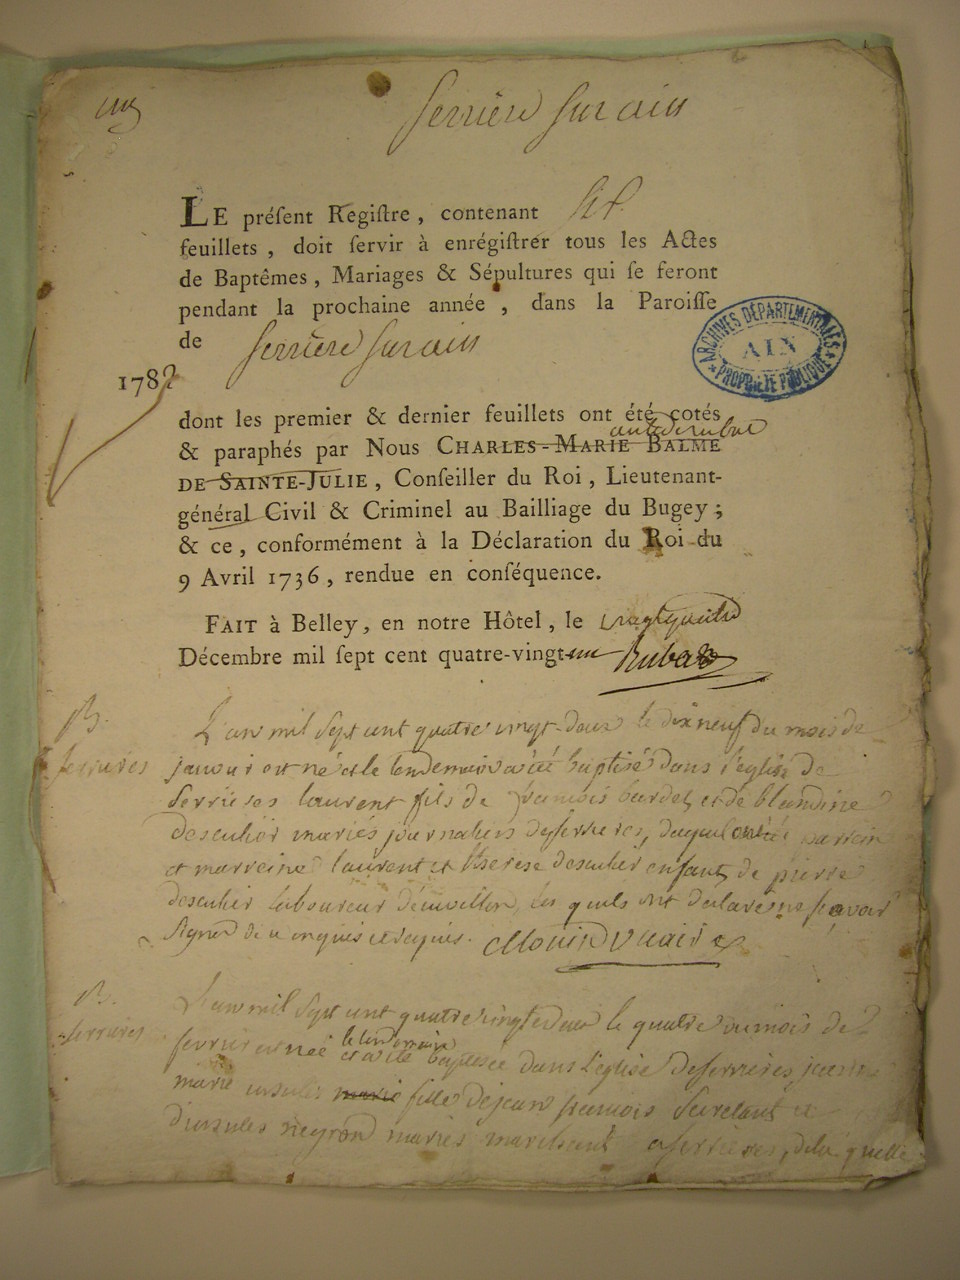 Serrière Sur ain
LE préſent Regiſtre, contenant Sit.
feuillets, doit ſervir à enrégiſtrer tous les Actes
de Baptêmes, Mariages & Sépultures qui ſe feront
pendant la prochaine année, dans la Paroiſſe
de Serrière Sur ain
1782
ARCHIVES DÉPARTEMENTALES
AIN
PROPRIÉTÉ PUBLIQUE
dont les premier & dernier feuillets ont été cotés
& paraphés par Nous CHARLES-MARIE BALME
DE SAINTE-JULIE, Conſeiller du Roi, Lieutenant-
général Civil & Criminel au Bailliage du Bugey;
& ce, conformément à la Déclaration du Roi du
9 Avril 1736, rendue en conſéquence.
FAIT à Belley, en notre Hôtel, le
Décembre mil ſept cent quatre-vingt-un
B.
Serrieres
L'an mil Sept cent quatre vingt-deux le dix neuf du mois de
janvier est né et le lendemain a été baptisé dans l'église de
Serrieres laurent fils de françois burdet et de blandine
descullier mariés journaliers de serrieres, duquel ont été parrein
et marreine laurent et therese descullier enfants de pierre
descullier laboureur les quels ont declaré ne sçavoir
Signer de ce enquis et requis. Vicaire
B.
Serrieres
L'an mil Sept cent quatre vingt deux le quatre du mois de
fevrier est née et a été baptisée dans l'église de serrieres jeanne
le lendemain
marie ursule marie fille de jean françois et
d'ursules neyron mariés marchant a serrieres, de la quelle